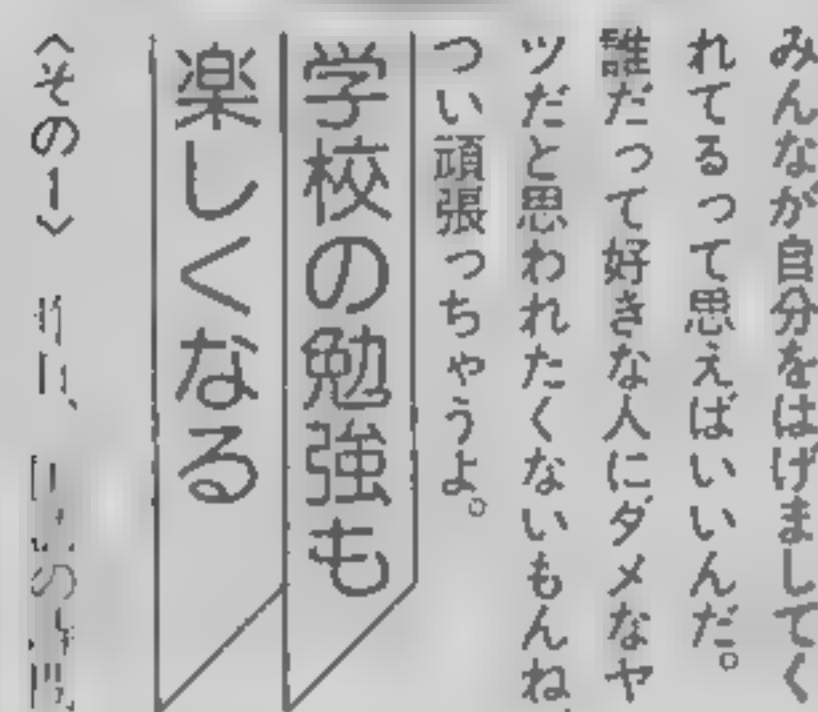 みんなが自分をはげましてく
れてるって思えばいいんだ。
誰だって好きな人にダメなヤ
ツだと思われたくないもんね、
つい頑張っちゃうよ。
学校の勉強も
楽しくなる
〈その1〉